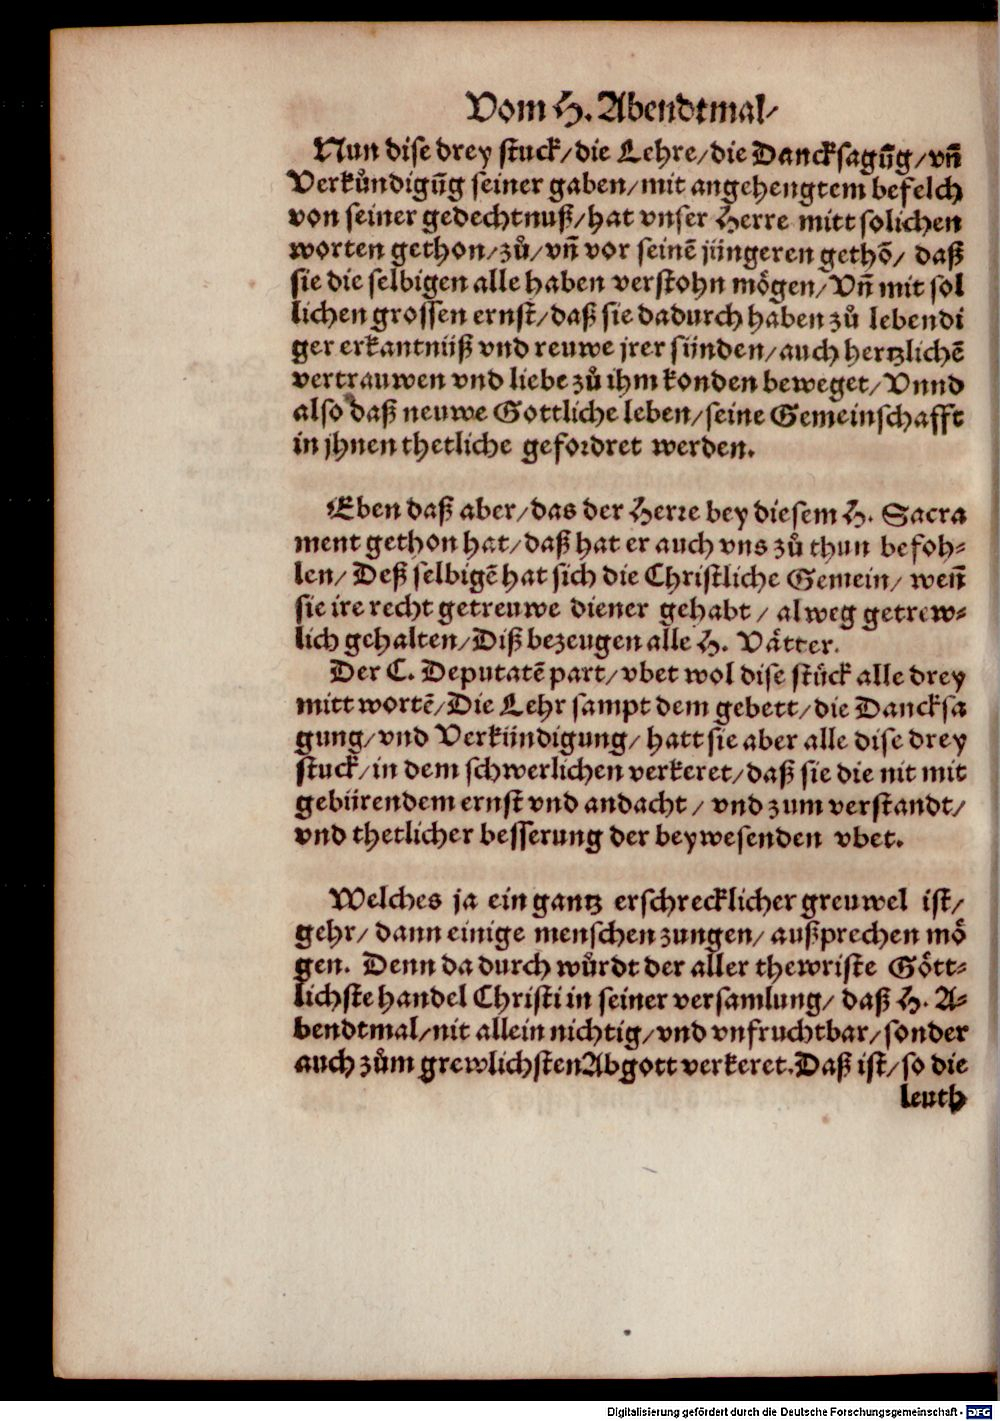 Vom H. Abendtmal/
Nun dise drey stuck/die Lehre/die Dancksagūg/vn̄
Verkůndigūg seiner gaben/mit angehengtem befelch
von seiner gedechtnuß/hat vnser Herre mitt solichen
worten gethon/zů/vn̄ vor seinē jüngeren gethō/ daß
sie die selbigen alle haben verstohn mögen/Vn̄ mit sol
lichen grossen ernst/daß sie dadurch haben zů lebendi
ger erkantnüß vnd reuwe jrer sünden/auch hertzlichē
vertrauwen vnd liebe zů ihm konden beweget/Vnnd
also daß neuwe Gottliche leben/seine Gemeinschafft
in jhnen thetliche gefordret werden.
Eben daß aber/das der Herre bey diesem H. Sacra
ment gethon hat/daß hat er auch vns zů thun befoh-
len/Deß selbigē hat sich die Christliche Gemein/ weñ
sie ire recht getreuwe diener gehabt/ alweg getrew-
lich gehalten/Diß bezeugen alle H. Vätter.
Der C. Deputatē part/vbet wol dise stück alle drey
mitt wortē/Die Lehr sampt dem gebett/die Dancksa
gung/vnd Verkündigung/ hatt sie aber alle dise drey
stuck/in dem schwerlichen verkeret/daß sie die nit mit
gebürendem ernst vnd andacht/ vnd zum verstandt/
vnd thetlicher besserung der beywesenden vbet.
Welches ja ein gantz erschrecklicher greuwel ist/
gehr/ dann einige menschen zungen/ außprechen mö
gen. Denn da durch wůrdt der aller thewriste Gött-
lichste handel Christi in seiner versamlung/ daß H. A-
bendtmal/nit allein nichtig/vnd vnfruchtbar/sonder
auch zům grewlichsten Abgott verkeret. Daß ist/so die
leuth
Digitalisierung gefördert durch die Deutsche Forschungsgemeinschaft - DFG